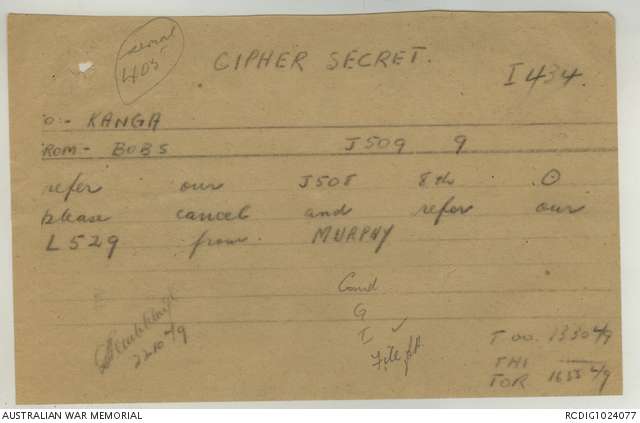 serial
405
CIPHER SECRET.
I 434.
O:- KANGA
ROM- BOBS J509 9
refer our J508 8th ⊙
please cancel and refer our
L529 from MURPHY
Comd
G
I ✓
File
2210 4/9
T OO. 1330 4/9
THI
TOR 1655 4/9
AUSTRALIAN WAR MEMORIAL
RCDIG1024077